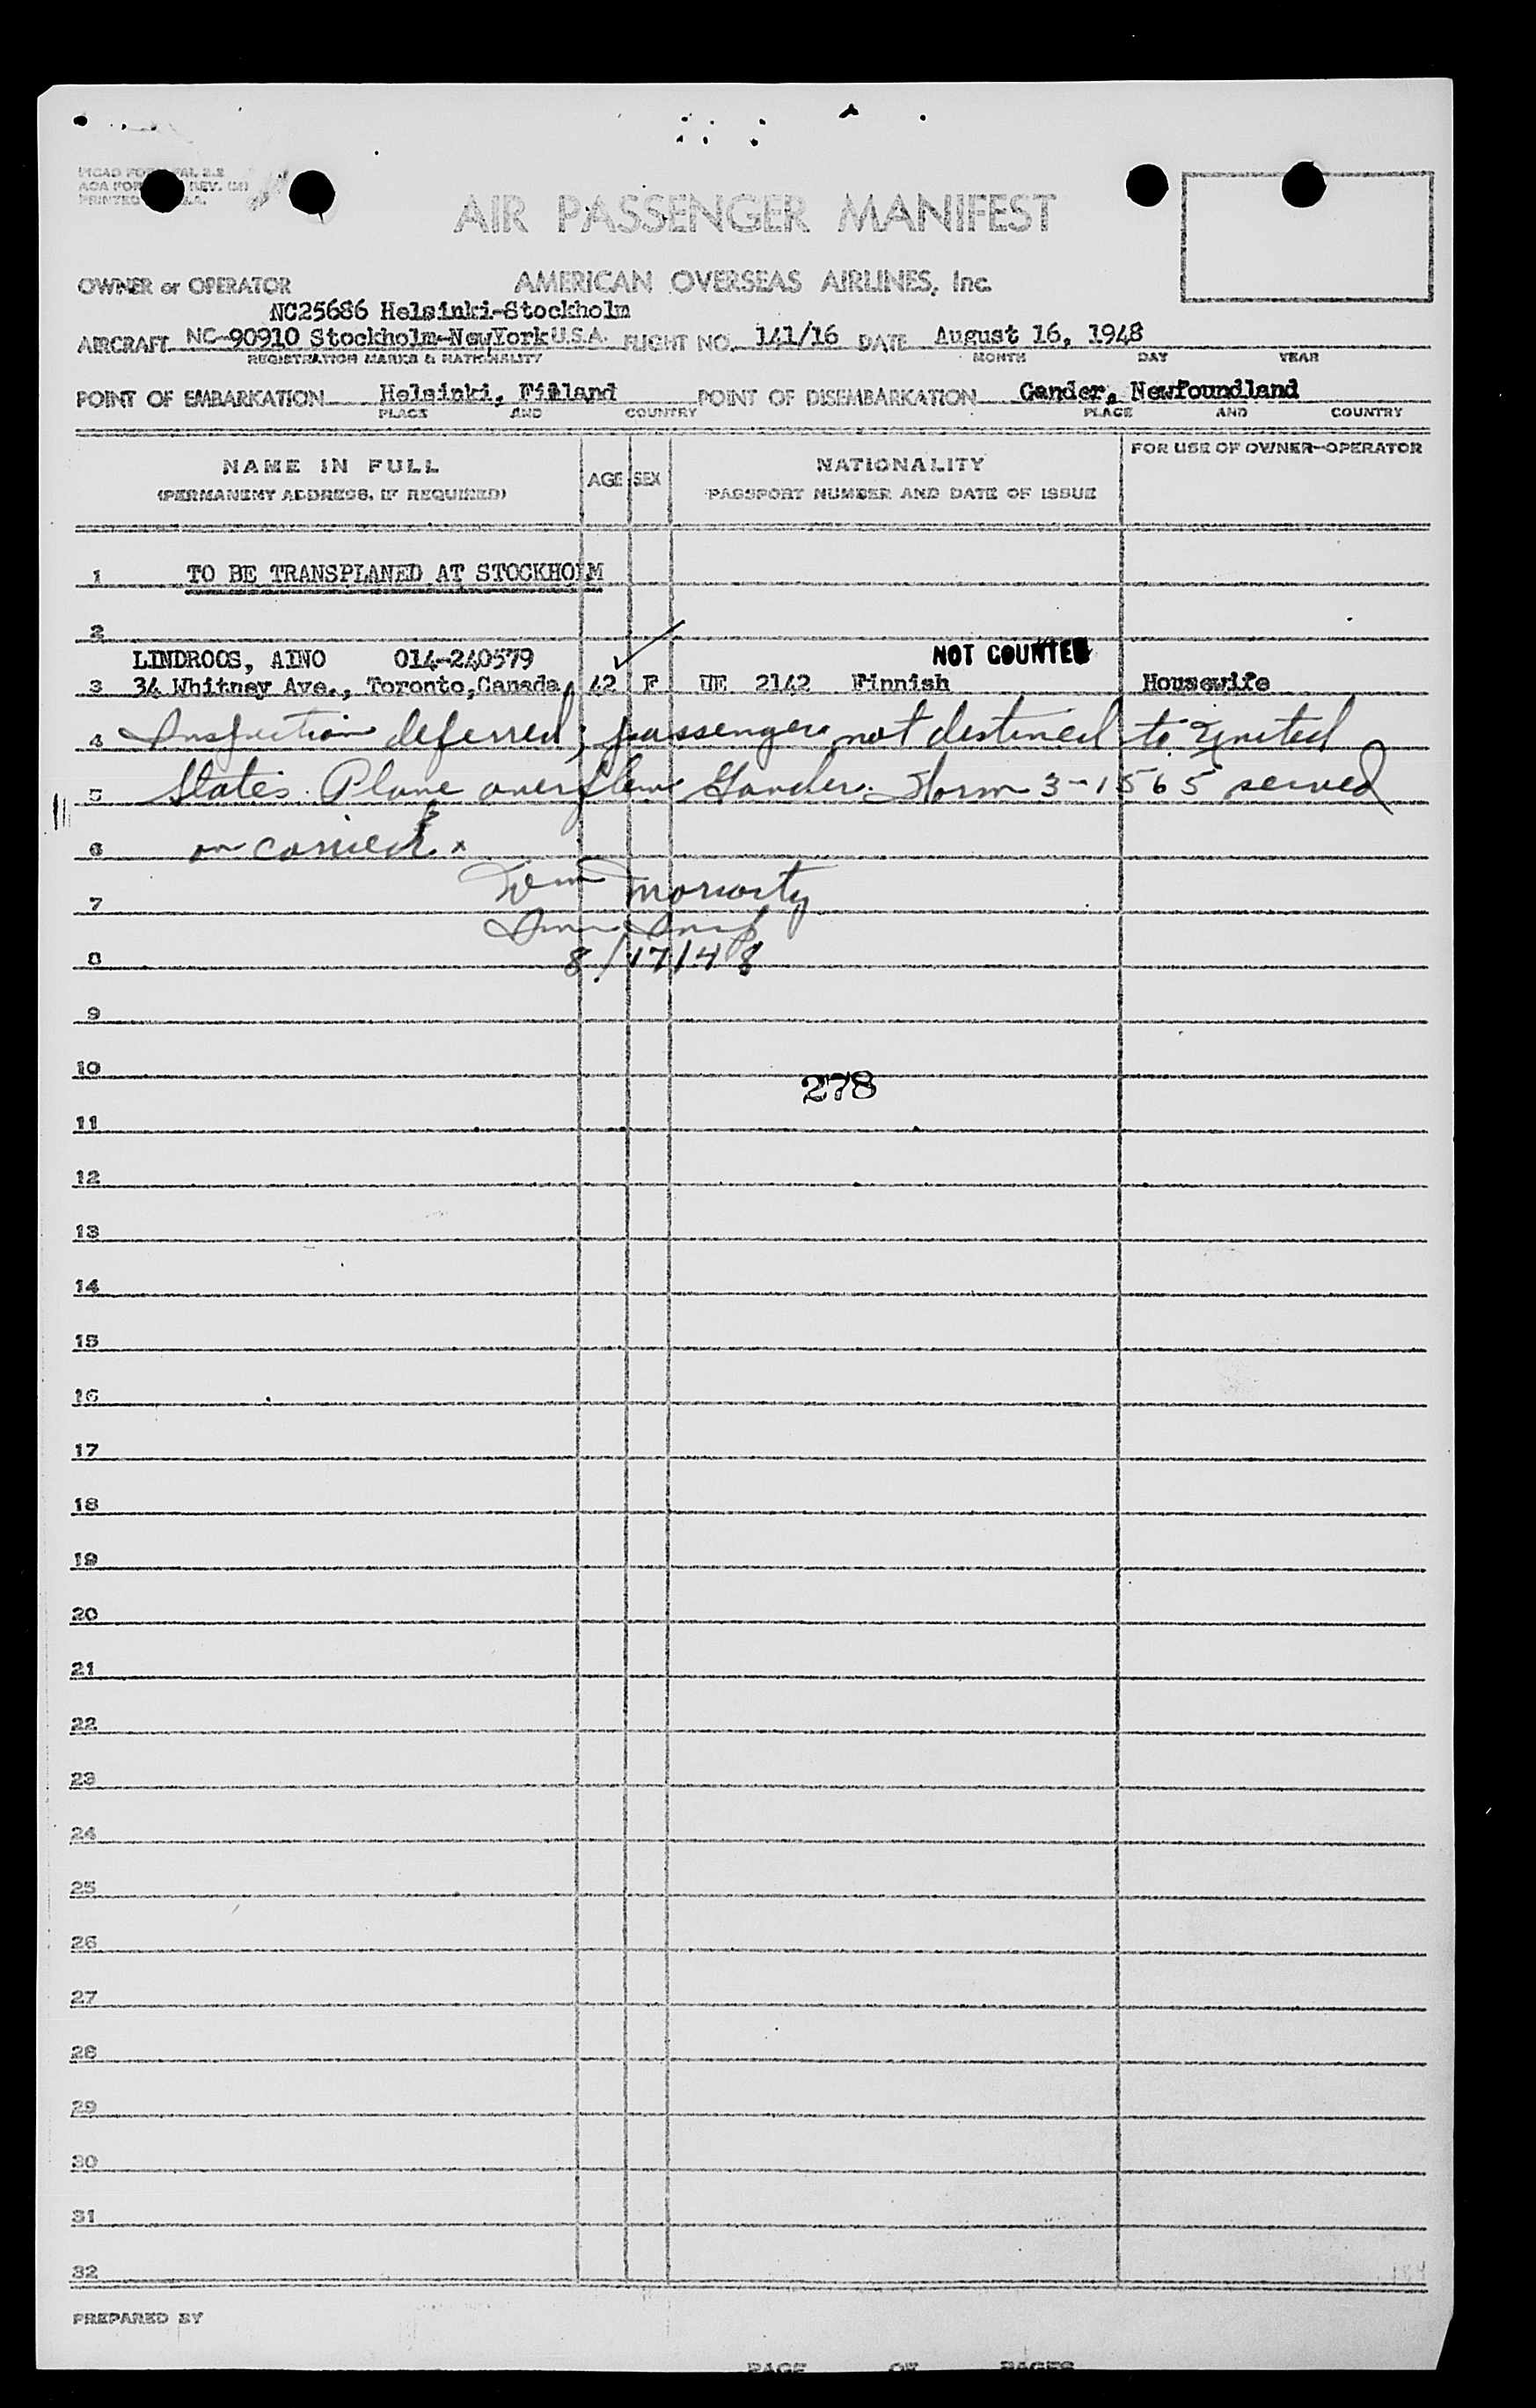 PICAO FOR
ACA FOR REV.
PRINTED
AIR PASSENGER MANIFEST
OWNER or OPERATOR AMERICAN OVERSEAS AIRLINES, Inc.
NC25686 Helsinki-Stockholm
AIRCRAFT NC-90910 Stockholm-NewYork U.S.A. FLIGHT NO. 141/16 DATE August 16, 1948
REGISTRATION MARKS & NATIONALITY MONTH DAY YEAR
POINT OF EMBARKATION Helsinki, Finland POINT OF DISEMBARKATION Gander, Newfoundland
PLACE AND COUNTRY PLACE AND COUNTRY
NAME IN FULL AGE SEX NATIONALITY FOR USE OF OWNER-OPERATOR
(PERMANENT ADDRESS, IF REQUIRED) PASSPORT NUMBER AND DATE OF ISSUE
1 TO BE TRANSPLANED AT STOCKHOLM
2
LINDROOS, AINO 014-240579 NOT COUNTED
3 34 Whitney Ave., Toronto, Canada, 42 F UE 2142 Finnish Housewife
4 Inspection deferred; passenger not destined to United
5 States. Plane overflew Gander. Form 3-1565 served
6 on carrier. x
Wm Moriarty
7
Imm Insp
8 8/17/48
9
10
278
11
12
13
14
15
16
17
18
19
20
21
22
23
24
25
26
27
28
29
30
31
32
PREPARED BY
PAGE OF PAGES